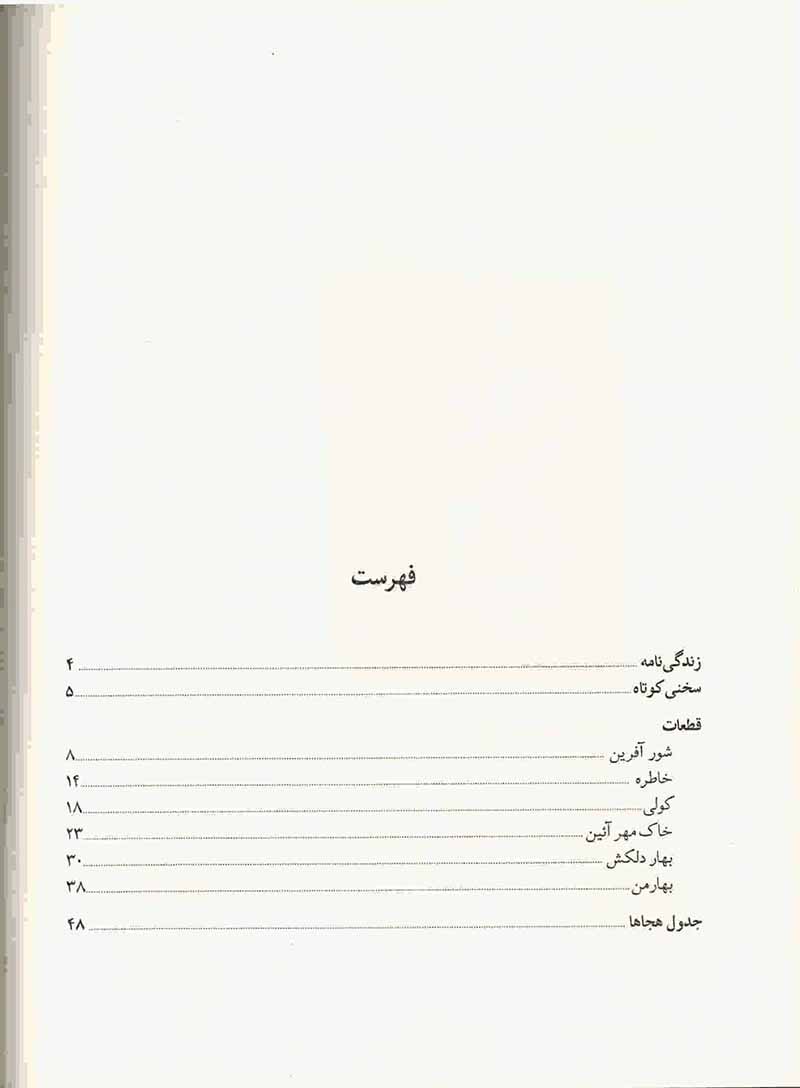 فهرست
زندگی‌نامه ........ ۴
سخنی کوتاه ........ ۵
قطعات
شور آفرین ........ ۸
خاطره ........ ۱۴
کولی ........ ۱۸
خاک مهر آئین ........ ۲۳
بهار دلکش ........ ۳۰
بهارمن ........ ۳۸
جدول هجاها ........ ۴۸